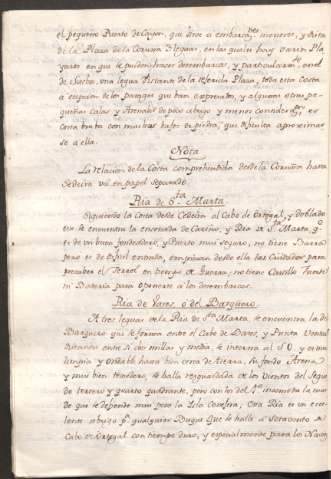 el pequeño Puerto de Cayon, que sirve a embarcaz.nes menores, y cerca
de la Plaza de la Coruña llegan, en las quales hay varias Pla
yas en que se pueden hacer desembarcos, y particularm.te en el
de Sarbo, una legua distante de la referida Plaza, toda esta Costa
à excepcion de los parages que han expresados, y algunas otras pe
queñas Calas y Arenales de poco abrigo y menor consideraz.on es
Corta con muchas de piedra, que dificulta aproximar
se a ella.
Nota
La relacion de la Costa comprehendida desde la Coruña hasta
Sedeira vá en papel separado.
Ria de S.ta Marta
Siguiendo la Costa desde Cedeira al Cabo de Ortegal, y doblado
este se encuentra la ensenada de Cariño, y Ria de S.ta Marta, q.e
es de un buen fondeadero, y Puerto muy seguro, no tiene Barra
pero es de dificil entrada, en desde ella las Cuidados para
precaber el Ferrol en tiempo de Guerra: no tiene Castillo Fuerte
ni Bateria para oponerse a los desembarcos.
Ria de Vares, ò del Barquero
A tres leguas de la Ria de S.ta Marta, se encuentra la del
Barquero que se forma entre el Cabo de Vares, y Punta
Distantes entre si dos millas y media, se interna al S.O. y es mui
limpia y ondable hasta bien cerca de tierra, su fondo Arena
y mui bien tenedero, se halla resguardada de los Vientos del Segun
do tercero y quarto quadrante, pero con los del 1.º incomoda la mar
de que se defiende mui poco la Isla Conejera, Esta Ria es un exce
lente abrigo p.a qualquier Buque que se halla a Sotavento de
Cabo de Ortegal con tiempo duro, y especialmente para los Navios